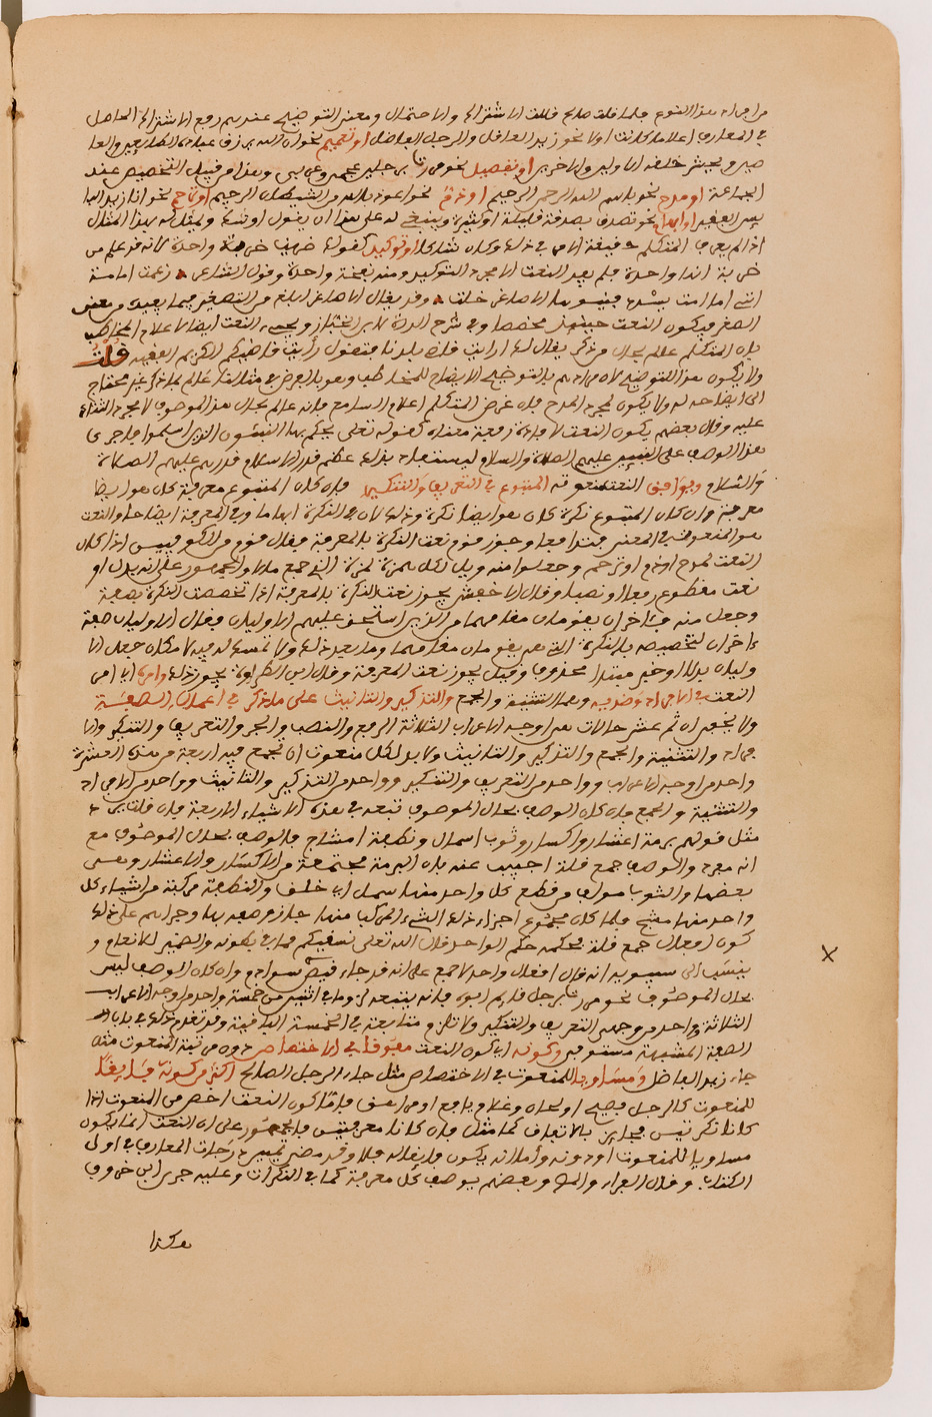 من افراد هذا النوع فلما قلت صالح قللت الاشتراك والاحتمال ومعنى التوضيح عندهم رفع الاشتراك الحاصل
في المعارف اعلاما كانت او لا نحو زيد العاقل والرجل الفاضل او تعميم نحو ان الله يرزق عباده الطايعين والعا
صين ويحشر خلقه الاولين والاخرين او تفصيل نحو مررت برجلين عجمي وعربي وهذا من قبيل التخصيص عند
الجماعة او مدح نحو بسم الله الرحمن الرحيم او ذم نحو اعوذ بالله من الشيطان الرجيم او ترحم نحو انا زيد البا
يس الفقير او ابهام نحو تصدق بصدقة قليلة او كثيرة وينبغي له على هذا ان يقول او شك ويمثل له بهذا المثال
اذا لم يعرف المتكلم حقيقة الامر في ذلك وكان شاكا او توكيد كقولك ضربت ضربة واحدة لانه قد علم من
ضربة انها واحدة فلم يفد النعت الا مجرد التوكيد ومنه نفخة واحدة وقول الشاعر زعمت امامة
انني اما امت يسدد بنيوها الاصاغر خلتي وقد يقال الاصاغر ابلغ من التصغير فيما يفيده من معنى
الصغر فيكون النعت حينئذ مخصصا وفي شرح البردة لابن الخباز ويجيء النعت ايضا لاعلام المخاطب
بان المتكلم عالم بحال من ذكر يقال لك ارايت قاضي بلدنا فتقول رأيت قاضيكم الكريم الفقيه قلت
ولا يكون هذا للتوضيح لان مرادهم بالتوضيح الايضاح للمخاطب وهو بالفرض في مثالنا عالم بما ذكر غير محتاج
الى ايضاحه له ولا يكون لمجرد المدح فان غرض المتكلم اعلام السامع بانه عالم بحال هذا الموصوف لا مجرد الثناء
عليه وقال بعضهم يكون النعت لافادة رفعة معناه كقوله تعالى يحكم بها النبيئون الذين اسلموا فاجرى
هذا الوصف على النبيين عليهم الصلاة والسلام ليستفاد بذلك عظم قدر الاسلام قدرهم عليهم الصلاة
والسلام ويوافق النعت منعوته المتبوع في التعريف والتنكير فان كان المتبوع معرفة كان هو ايضا
معرفة وان كان المتبوع نكرة كان هو ايضا نكرة وذلك لان في النكرة ابهاما وفي المعرفة ايضاحا والنعت
هو المنعوت في المعنى فتدافعا وجوز قوم نعت النكرة بالمعرفة فقال قوم من الكوفيين اذا كان
النعت لمدح او ذم او ترحم وجعلوا منه ويل لكل همزة لمزة الذي جمع مالا والجمهور على انه بدل او
نعت مقطوع رفعا او نصبا وقال الاخفش يجوز نعت النكرة بالمعرفة اذا تخصصت النكرة بصفة
وجعل منه فئاخران يقومان مقامهما من الذين استحق عليهم الاوليان فقال الاوليان صفة
ءاخران لتخصيصه بالنكرة التي هي يقومان مقامهما وما بعد ذلك ولا تمسك له فيه لامكان جعل الا
وليان بدلا او خبر مبتدا محذوف وقيل يجوز نعت المعرفة وقال ابن الطراوة يجوز ذلك وامره اي امر
النعت في الافراد وضديه وهما التثنية والجمع والتذكير والتانيث على ما ذكر في اعمال الصفة
ولا يخفى ان ثم عشر حالات هي اوجه الاعراب الثلاثة الرفع والنصب والجر والتعريف والتنكير والا
فراد والتثنية والجمع والتذكير والتانيث ولا بد لكل منعوت ان تجمع فيه اربعة من هذه العشرة
واحد من اوجه الاعراب وواحد من التعريف والتنكير وواحد من التذكير والتانيث وواحد من الافراد
والتثنية والجمع فان كان الوصف بحال الموصوف تبعه في هذه الاشياء الاربعة فان قلت يرد
مثل قولهم برمة اعشار واكسار وثوب اسمال ونطفة امشاج فالوصف بحال الموصوف مع
انه مفرد والوصف جمع قلت اجيب عنه بان البرمة مجتمعة من الاكسار والاعشار وهي
بعضها والثوب مولف من قطع كل واحد منها سمل اي خلق والنطفة مركبة من اشياء كل
واحد منها مشج فلما كان مجموع اجزاء ذلك الشيء المركب منها جاز وصفه بها وجراهم على ذلك
كون افعال جمع قلة فحكمه حكم الواحد قال الله تعالى نسقيكم مما في بطونه والضمير للانعام و
ينسب الى سيبويه انه قال افعال واحد لا جمع على انه قد جاء قميص سواده وان كان الوصف ليس
بحال الموصوف نحو مررت برجل قايم ابوه فانه يتبعه في وما في اثنين من خمسة واحد من اوجه الاعراب
الثلاثة وواحد من وجهي التعريف والتنكير ولا تلزم متابعة في الخمسة الباقية وقد تقدم ذلك في باب
الصفة المشبهة مستوفى وكونه اي كون النعت مفوقا في الاختصاص دون مرتبة المنعوت مثله
جاء زيد الفاضل ومساويا للمنعوت في الاختصاص مثل جاء الرجل الصالح اكثر من كونه فايقا
للمنعوت كالرجل فصيح او لحان وغلام يافع او مراهق فاما كون النعت اخص من المنعوت اذا
كانا نكرتين فجايز بالاتفاق كما مثل فان كانا معرفتين فالجمهور على ان النعت انما يكون
مساويا للمنعوت او دونه واما انه يكون فايقا له فلا وقد مضى تمييز درجات المعارف في اول
الكتاب وقال الفراء والشلوبين وبعضهم يوصف كل معرفة كما في النكرات وعليه جرى ابن خروف
هكذا